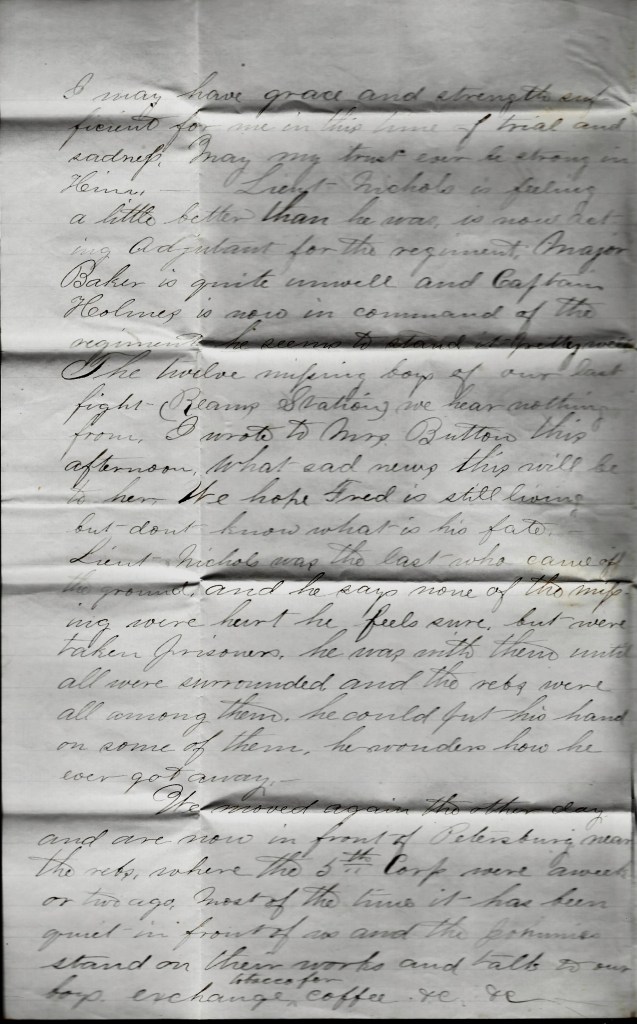 I may have grace and strength suf
ficient for me in this time of trial and
sadness. May my trust ever be strong in
Him. — Lieut Nichols is feeling
a little better than he was, is now act
ing Adjutant for the regiment, Major
Baker is quite unwell and Captain
Holmes is now in command of the
regiment he seems to stand it pretty well
The twelve missing boys of our last
fight (Reams Station) we hear nothing
from, I wrote to Mrs Button this
afternoon, what sad news this will be
to her. We hope Fred is still living
but dont know what is his fate.
Lieut Nichols was the last who came off
the ground, and he says none of the miss
ing were hurt he feels sure, but were
taken prisoners, he was with them until
all were surrounded and the rebs were
all among them, he could put his hand
on some of them, he wonders how he
ever got away. —
We moved again the other day
and are now in front of Petersburg near
the rebs, where the 5th Corp were a week
or two ago, Most of the time it has been
quiet in front of us and the Johnnies
stand on their works and talk to our
boys. exchange tobacco for coffee &c. &c